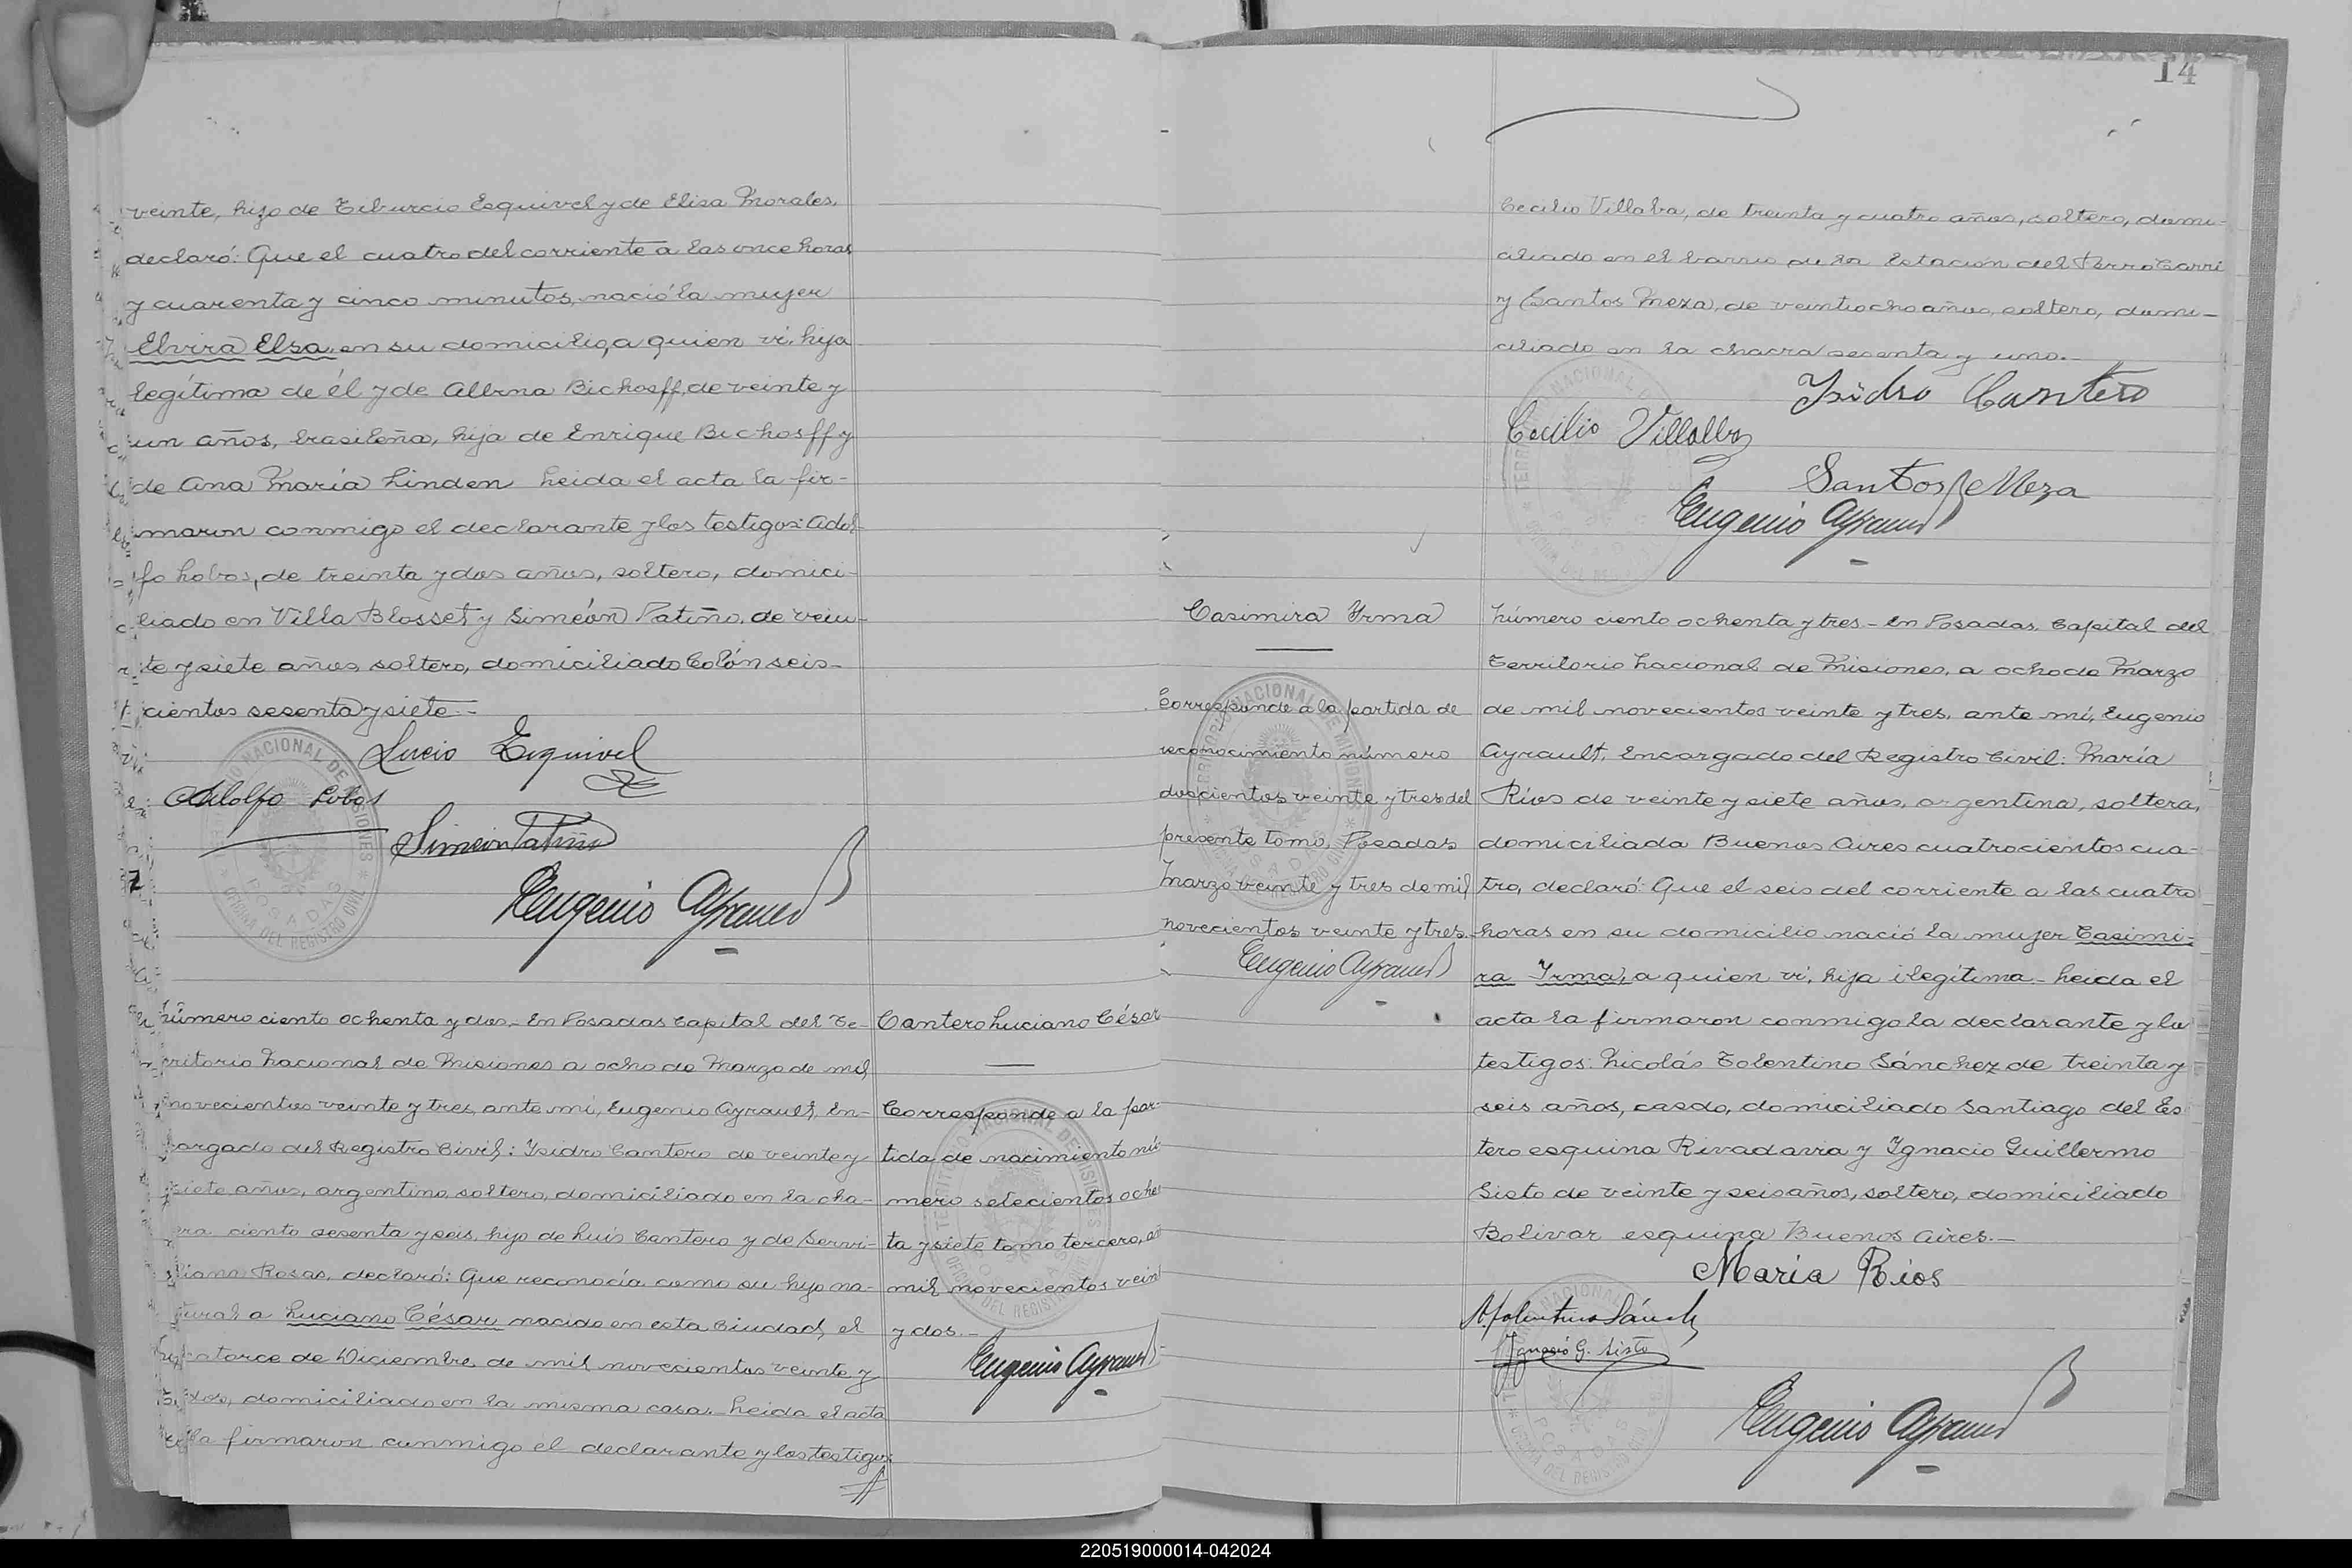 veinte, hijo de Tiburcio Esquivel y de Elisa Morales,
declaró: Que el cuatro del corriente a las once horas
y cuarenta y cinco minutos, nació la mujer
Elvira Elsa, en su domicilio, a quien vi, hija
legítima de él y de Albina Bichoeff, de veinte y
un años, brasileña, hija de Enrique Bichoeff y
de Ana María Linden Leida el acta la fir-
maron conmigo el declarante y los testigos: Adol-
fo Lobos, de treinta y dos años, soltero, domici-
liado en Villa Blosset y Simeón Patiño, de vein-
te y siete años soltero, domiciliado Colón seis-
cientos sesenta y siete.-
Lucio Esquivel
Adolfo Lobos
Simeón Patiño
Eugenio Ayrault
Número ciento ochenta y dos.- En Posadas Capital del Te-
rritorio Nacional de Misiones a ocho de Marzo de mil
novecientos veinte y tres, ante mi, Eugenio Ayrault, En-
cargado del Registro Civil: Isidro Cantero de veinte y
siete años, argentino, soltero, domiciliado en la cha-
cra ciento sesenta y seis, hijo de Luis Cantero y de Servi-
liana Rosas, declaró: Que reconocía como su hijo na-
tural a Luciano César nacido en esta Ciudad, el
catorce de Diciembre de mil novecientos veinte y
dos, domiciliado en la misma casa.- Leida el acta
la firmaron conmigo el declarante y los testigos:
Cantero Luciano César
Corresponde a la par-
tida de nacimiento nú-
mero setecientos ochen
ta y siete tomo tercero, añ
mil novecientos vein
y dos.-
Eugenio Ayrault
14
Cecilio Villalba, de treinta y cuatro años, soltero, domi-
ciliado en el barrio de la Estación del Ferro Carri
y Santos Meza, de veintiocho años, soltero, domi-
ciliado en la chacra sesenta y uno.-
Isidro Cantero
Cecilio Villalba
Santos Meza
Eugenio Ayrault
Casimira Yrma
Corresponde a la partida de
reconocimiento número
doscientos veinte y tres del
presente tomo, Posadas
Marzo veinte y tres de mil
novecientos veinte y tres.-
Eugenio Ayrault
Número ciento ochenta y tres.- En Posadas, Capital del
Territorio Nacional de Misiones, a ocho de Marzo
de mil novecientos veinte y tres, ante mí, Eugenio
Ayrault, Encargado del Registro Civil: María
Ríos de veinte y siete años, argentina, soltera,
domiciliada Buenos Aires cuatrocientos cua-
tro, declaró: Que el seis del corriente a las cuatro
horas en su domicilio nació la mujer Casimi-
ra Irma, a quien vi, hija ilegítima.- Leida el
acta la firmaron conmigo la declarante y los
testigos: Nicolás Tolentino Sánchez de treinta y
seis años, casdo, domiciliado Santiago del Es
tero esquina Rivadavia y Ignacio Guillermo
Sisto de veinte y seis años, soltero, domiciliado
Bolivar esquina Buenos Aires.-
Maria Rios
N. Tolentino Sánchez
Ignacio G. Sisto
Eugenio Ayrault
TERRITORIO NACIONAL DE MISIONES
POSADAS
OFICINA DEL REGISTRO CIVIL
220519000014-042024